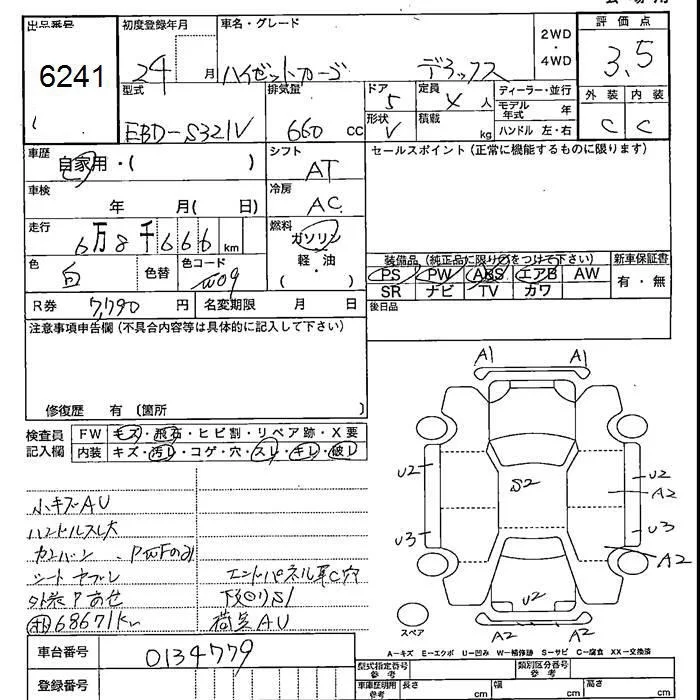 出品番号 初度登録年月 車名・グレード 評価点
6241 24 月 ハイゼットカーゴ デラックス 2WD ・ 4WD 3.5
型式 排気量 ドア 定員 ディーラー・並行 外装 内装
EBD-S321V 660 cc 5 4 人 モデル年式 年 C C
形状 V 積載 kg ハンドル 左・右
車歴 自家用・( ) シフト AT セールスポイント(正常に機能するものに限ります)
車検 年 月( 日) 冷房 AC
走行 6万8千666 km 燃料 ガソリン
軽・油
・
( )
色 白 色替 色コード W09
装備品 (純正品に限り○をつけて下さい) 新車保証書
PS PW ABS エアB AW 有・無
SR ナビ TV カワ
R券 7,790 円 名変期限 月 日 後日品
注意事項申告欄(不具合内容等は具体的に記入して下さい)
修復歴 有 〔箇所 〕
検査員記入欄 FW キズ・飛石・ヒビ割・リペア跡・X要
内装 キズ・汚レ・コゲ・穴・スレ・キレ・破レ
小キズAU
ハンドルスレ大
シート
外装 アせ エンドパネル 穴
68671km 下回りS1
荷室AU
A1 A1
U2 S2 U2
A2
U3 U3
A2
U2
A2 A2
スペア
A-キズ E-エクボ U-凹み W-補修跡 S-サビ C-腐食 XX-交換済
車台番号 0134779
登録番号
型式指定番号 参考 類別区分番号 参考
車庫証明用 参考 長さ cm 幅 cm 高さ cm